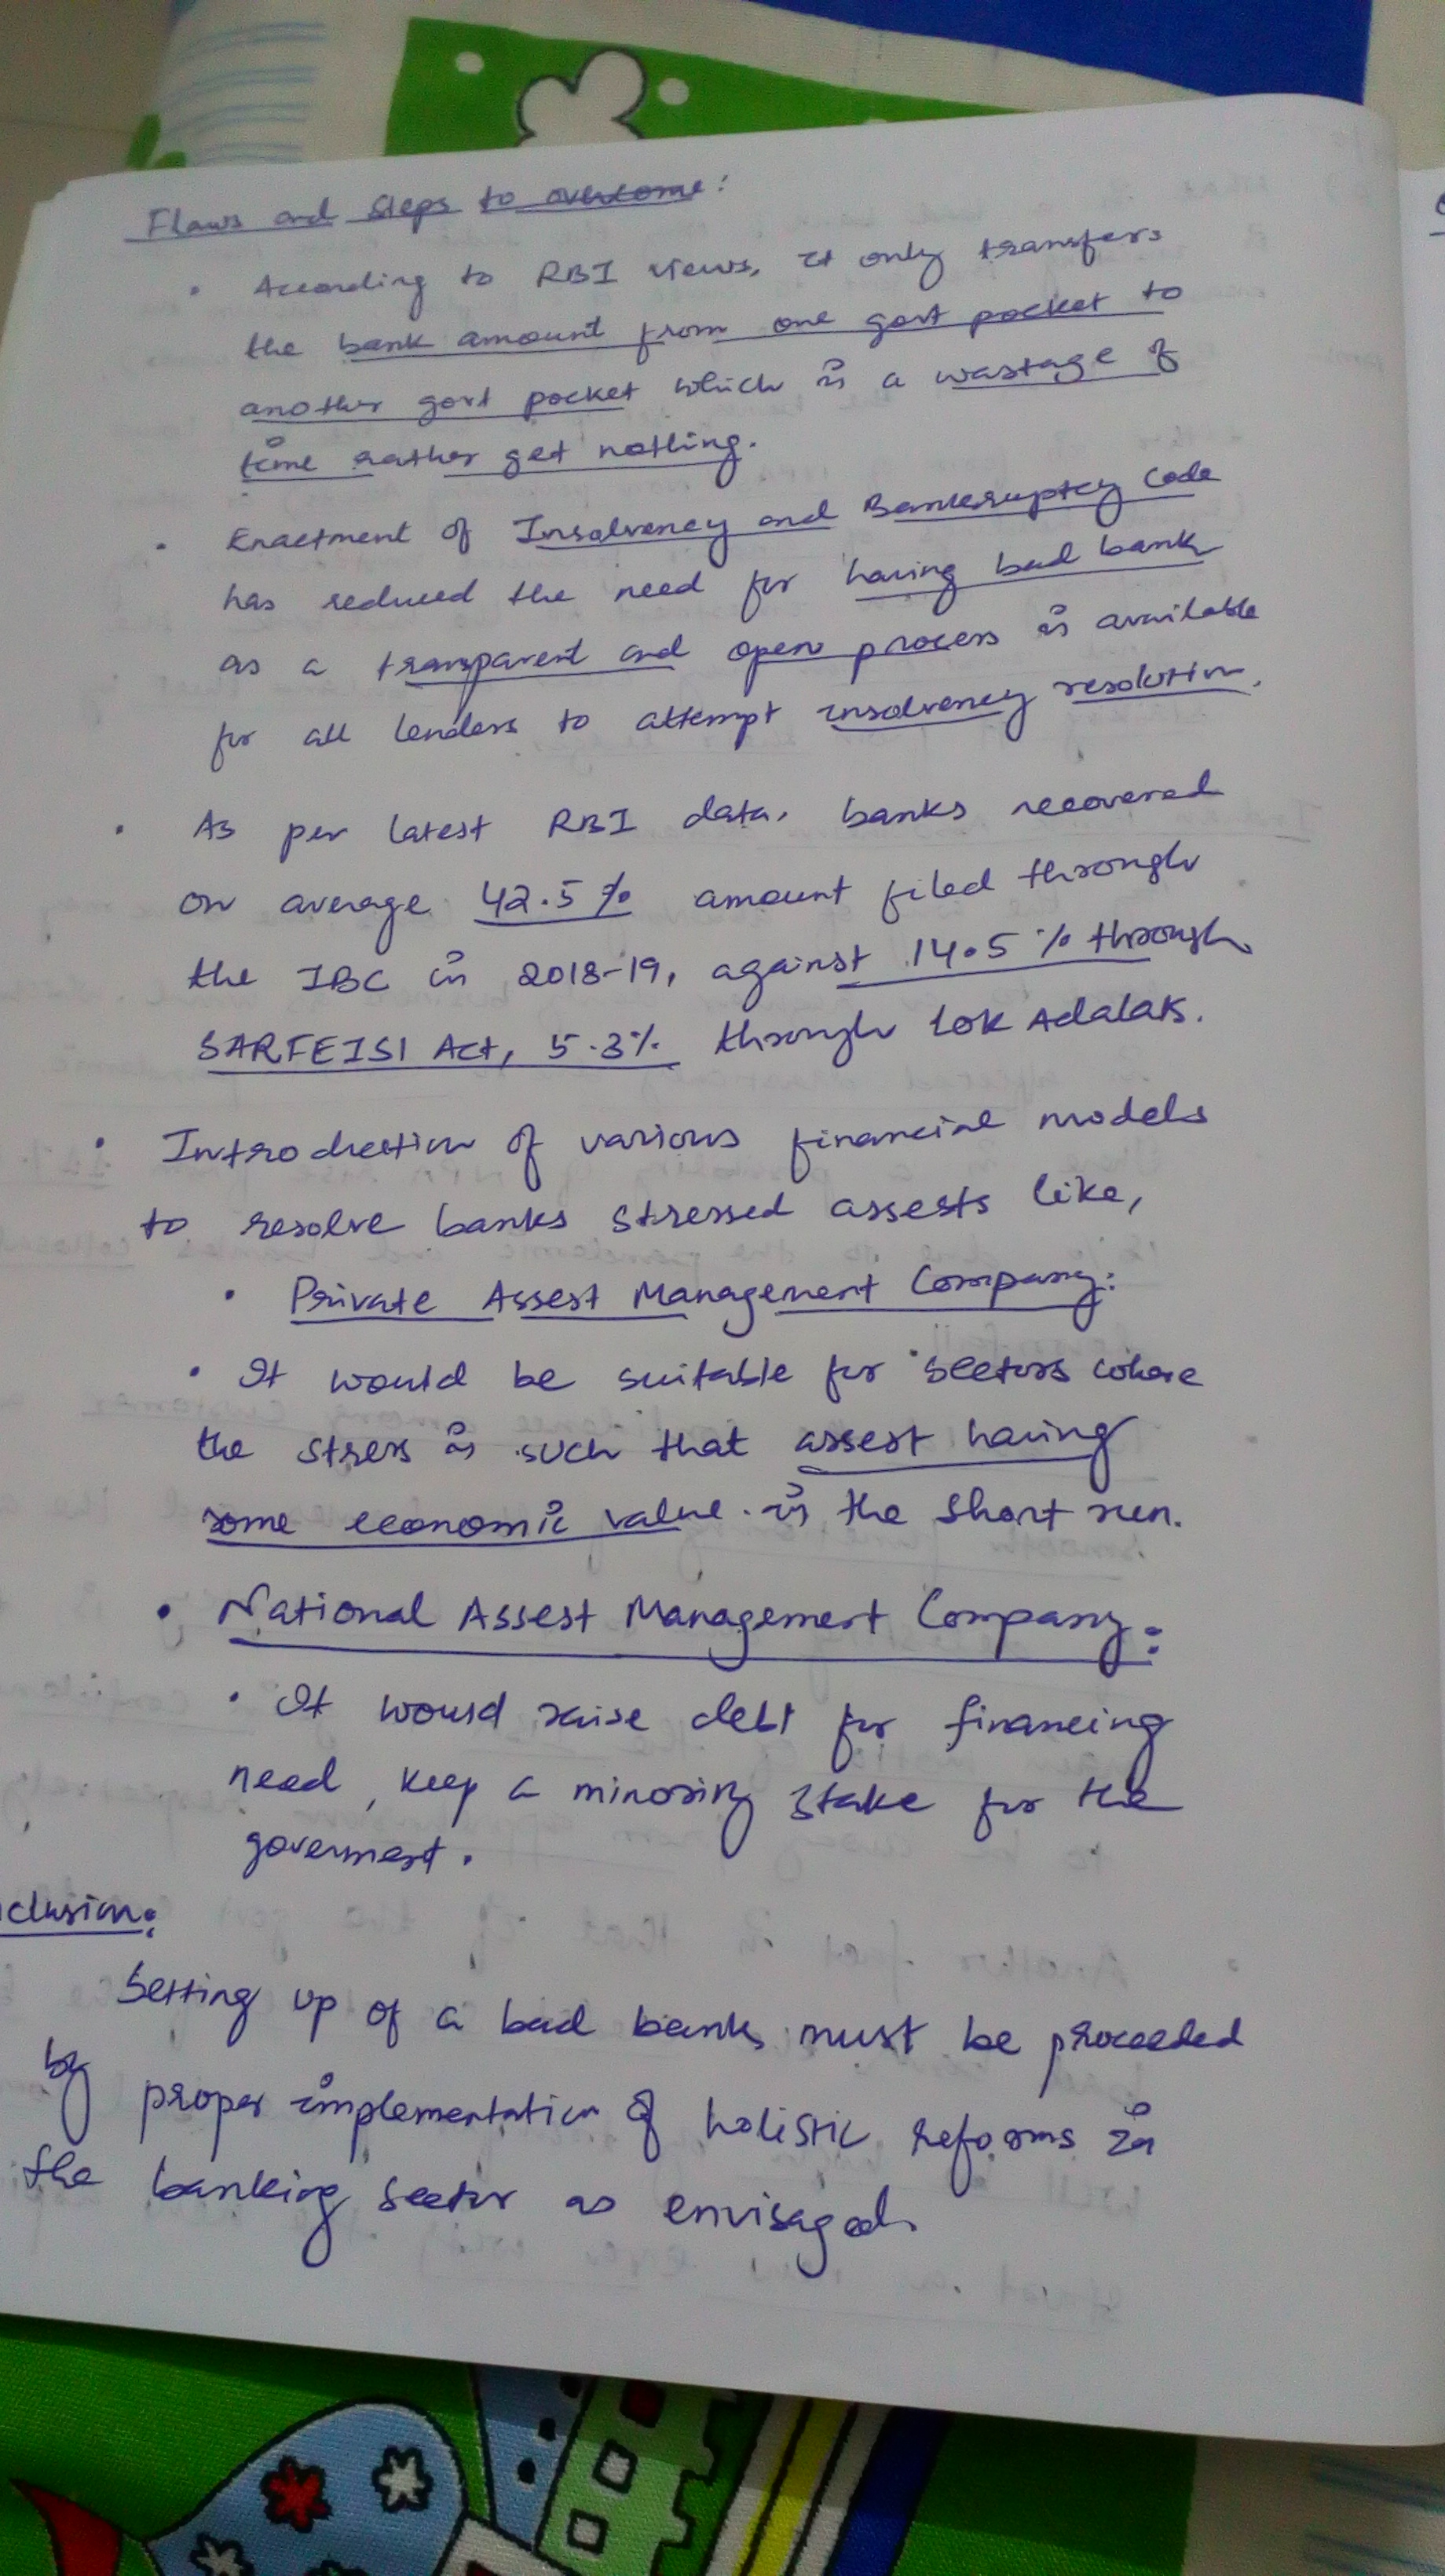 Flaws and Steps to overcome:
• According to RBI views, it only transfers
the bank amount from one govt pocket to
another govt pocket which is a wastage of
time rather get nothing.
• Enactment of Insolvency and Bankruptcy Code
has reduced the need for having bad bank
as a transparent and open process is available
for all lenders to attempt insolvency resolution.
• As per latest RBI data, banks recovered
on average 42.5% amount filed through
the IBC in 2018-19, against 14.5% through
SARFEISI Act, 5.3% through Lok Adalats.
• Introduction of various financial models
to resolve banks stressed assests like,
• Private Assest Management Company:
• It would be suitable for sectors where
the stress is such that assest having
some economic value in the short run.
• National Assest Management Company:
• It would raise debt for financing
need, keep a minority stake for the
government.
clusion:
Setting up of a bad bank must be proceeded
by proper implementation of holistic reforms in
the banking sector as envisaged.